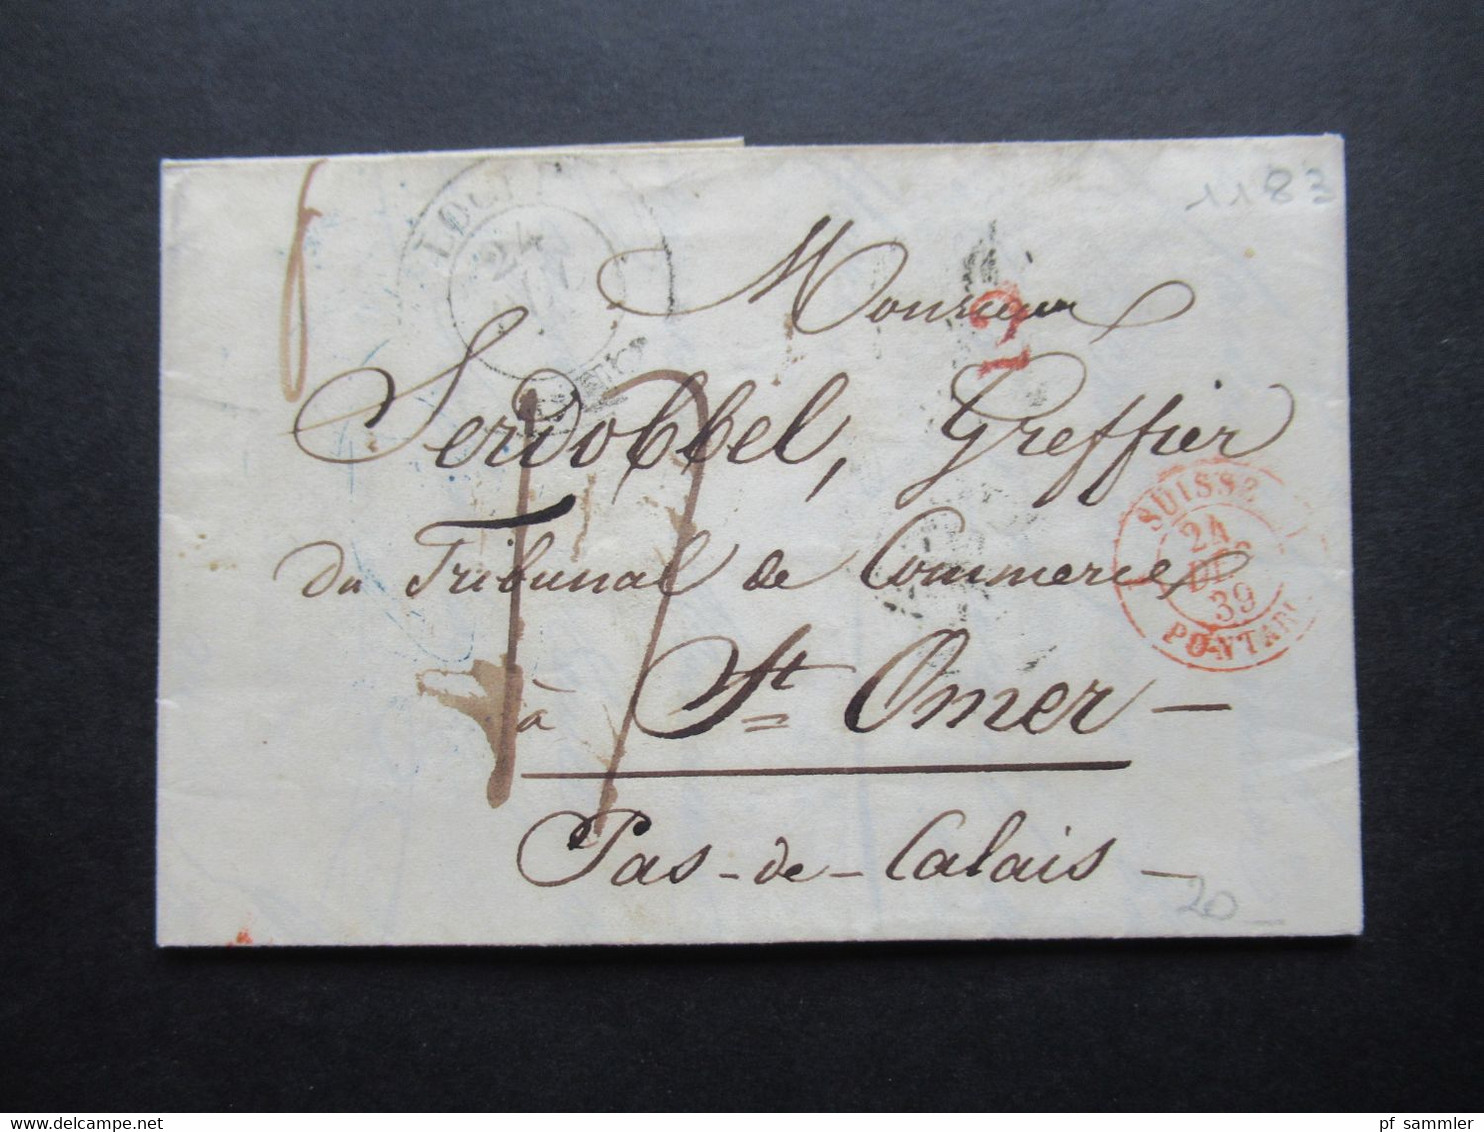 1183
LOCLE
24
Monsieur
Servobbel, Greffier
du Tribunal de Commerce
à St Omer —
Pas-de-Calais —
SUISSE
24
DEC
39
PONTARL
20
pf_sammler
delcampe.net